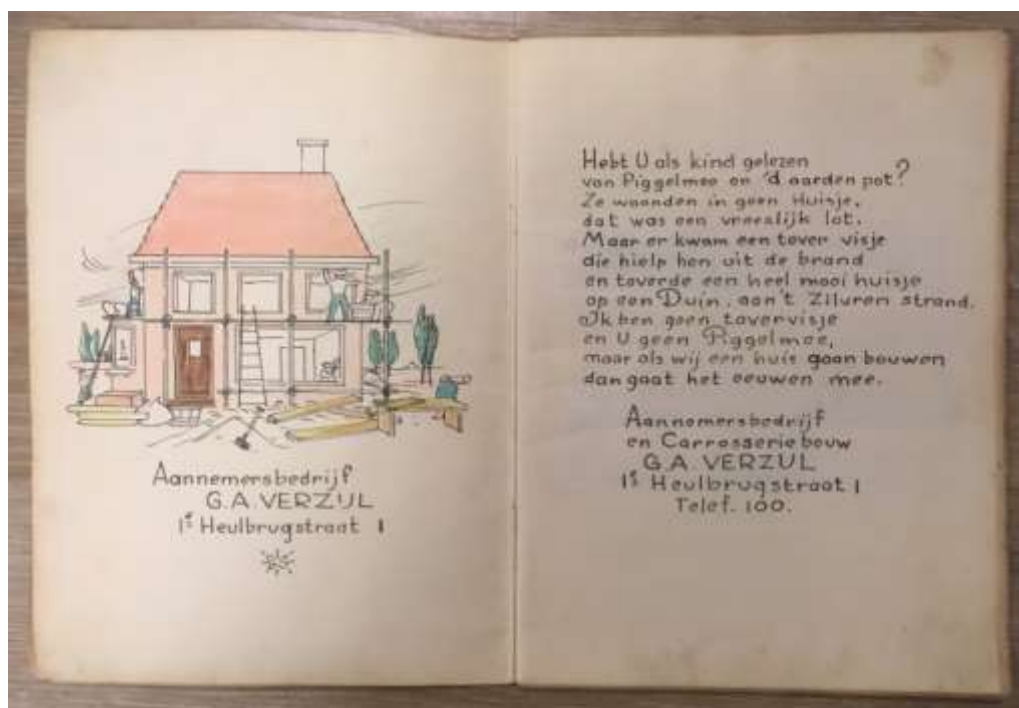 Aannemersbedrijf
G.A. VERZIJL
1e Heulbrugstraat 1
Hebt U als kind gelezen
van Piggelmee en 'd aarden pot?
Ze woonden in geen Huisje,
dat was een vreeslijk lot.
Maar er kwam een tover visje
die hielp hen uit de brand
en toverde een heel mooi huisje
op een Duin, aan't Zilvren strand.
Ik ben geen tovervisje
en U geen Piggelmee,
maar als wij een huis gaan bouwen
dan gaat het eeuwen mee.
Aannemersbedrijf
en Carrosseriebouw
G.A. VERZIJL
1e Heulbrugstraat 1
Telef. 100.